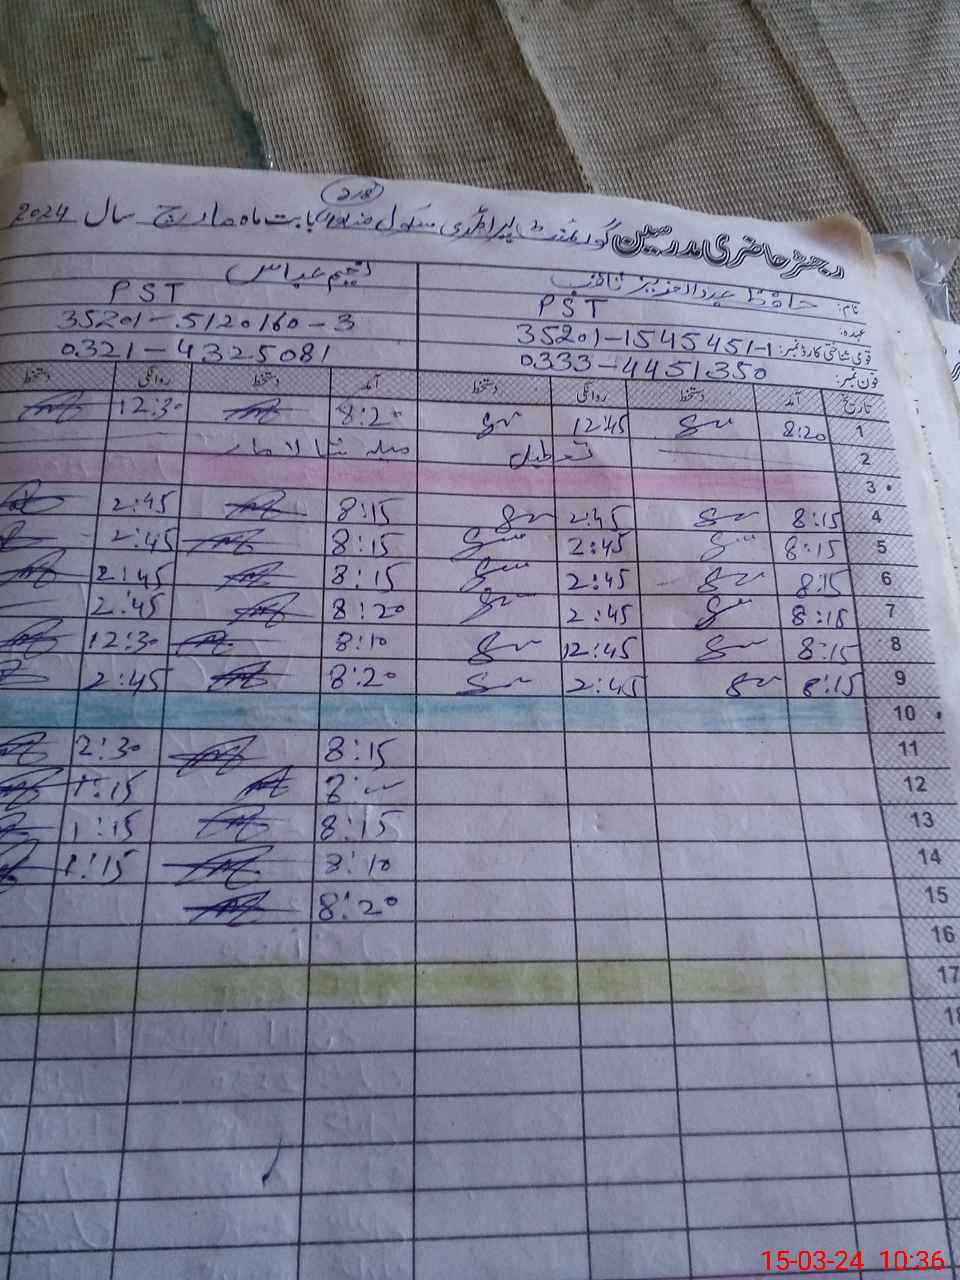 218
رجسٹر حاضری مدرسین گورنمنٹ پرائمری سکول بابت ماہ مارچ سال 2024
نام: حافظ عبدالعزیز ثاقب
عہدہ: PST PST
قومی شناختی کارڈ نمبر: 35201-1545451-1 35201-5120160-3
فون نمبر: 0333-4451350 0321-4325081
تاریخ آمد دستخط روانگی دستخط آمد دستخط روانگی دستخط
1 8:20 12:45 8:20 12:30
2 تعطیل میلہ شالامار
3
4 8:15 2:45 8:15 2:45
5 8:15 2:45 8:15 2:45
6 8:15 2:45 8:15 2:45
7 8:15 2:45 8:20 2:45
8 8:15 12:45 8:10 12:30
9 8:15 2:45 8:20 2:45
10
11 8:15 2:30
12 1:15
13 8:15 1:15
14 8:10 1:15
15 8:20
16
17
18
15-03-24 10:36